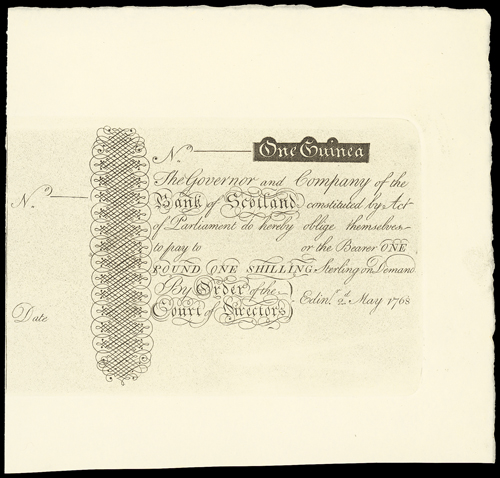 No
One Guinea
No
The Governor and Company of the
Bank of Scotland constituted by Act
of Parliament do hereby oblige themselves
to pay to or the Bearer ONE
POUND ONE SHILLING Sterling on Demand
By Order of the
Court of Directors
Edinr 2d May 1768
Date